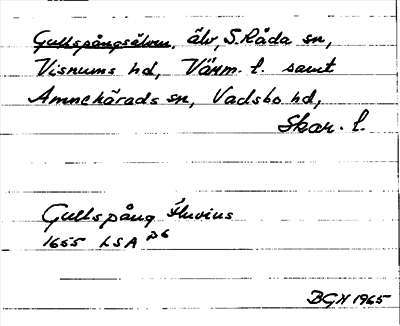 Gullspångsälven, älv, S. Råda sn,
Visnums hd, Värm. l. samt
Amnehärads sn, Vadsbo hd,
Skar. l.
Gullspång Fluvius
1655 LSA D6
BGH 1965